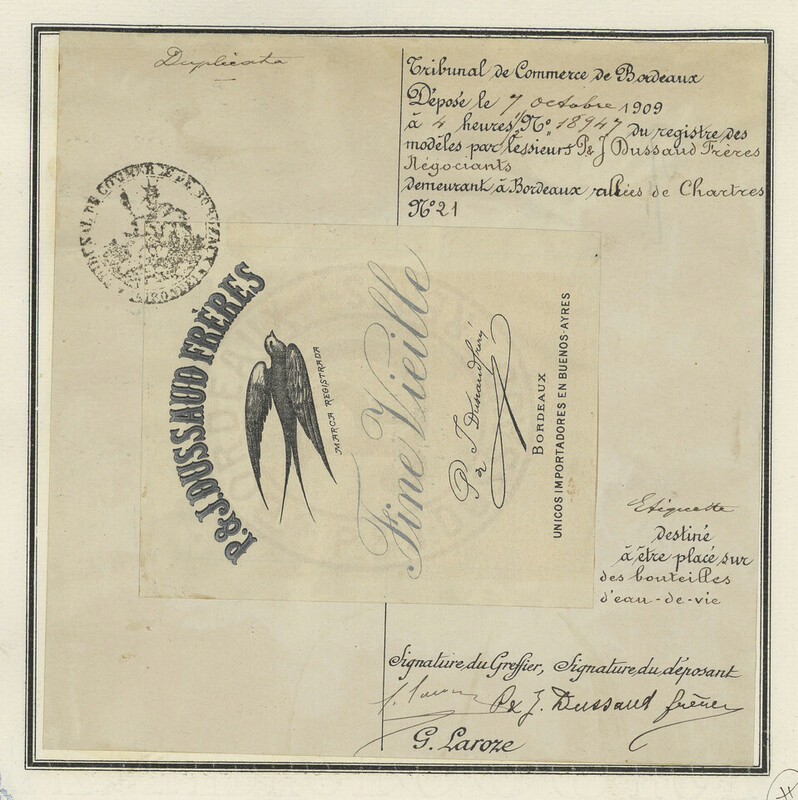 Duplicata
Tribunal de Commerce de Bordeaux
Déposé le 7 octobre 1909
à 4 heures 1/2 No 18947 du registre des
modèles par lessieurs P & J Dussaud Frères
Négociants
demeurant à Bordeaux allées de Chartres
No 21
TRIBUNAL DE COMMERCE DE BORDEAUX
P. & J. DUSSAUD FRÈRES
MARCA REGISTRADA
Fine Vieille
P & J Dussaud frères
BORDEAUX
UNICOS IMPORTADORES EN BUENOS-AYRES
Etiquette
destiné
à être placé sur
des bouteilles
d'eau-de-vie
Signature du Greffier, Signature du déposant
P & J. Dussaud frères
G. Laroze